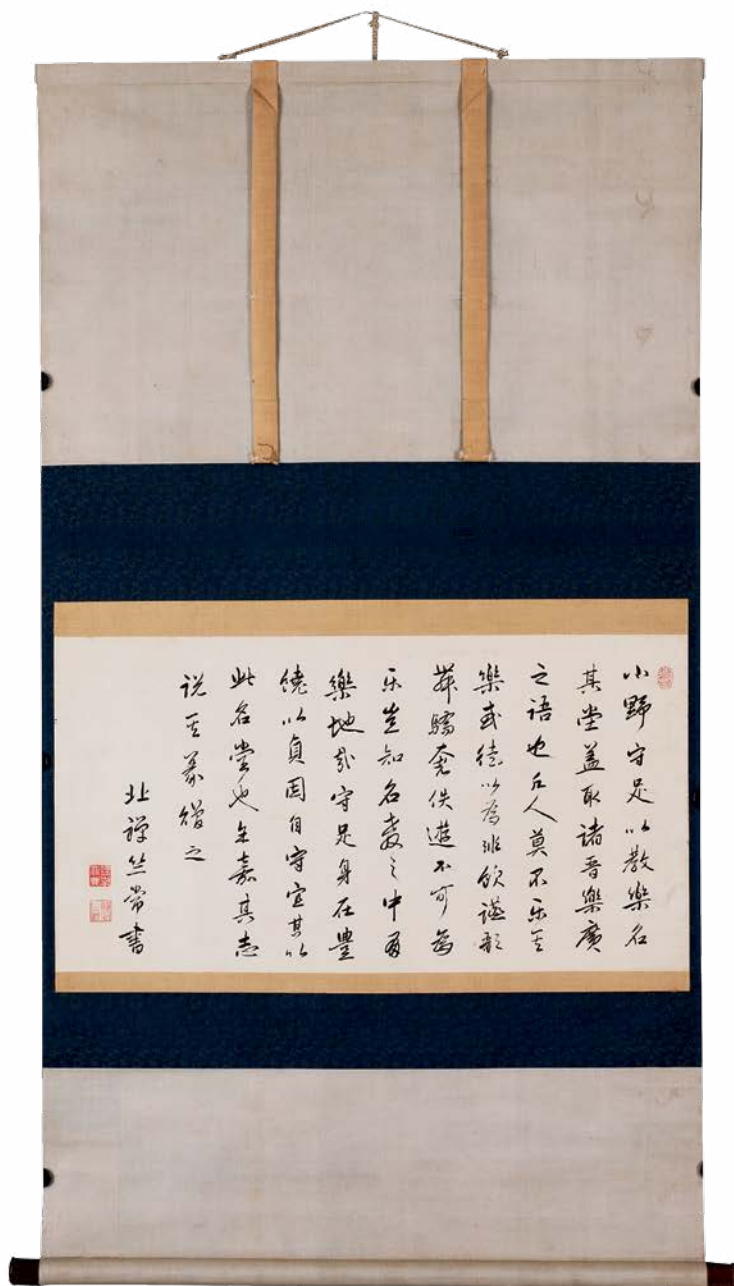 小野守足以教樂名
其堂蓋取諸晋樂廣
之語也凡人莫不乐其
樂或徒以為非飲歌
舞驕奢佚遊不可為
乐豈知名教之中有
樂地哉守足身在豊
饒以貞固自守宜其以
此名堂也余嘉其志
説其義贈之
北禅竺常書